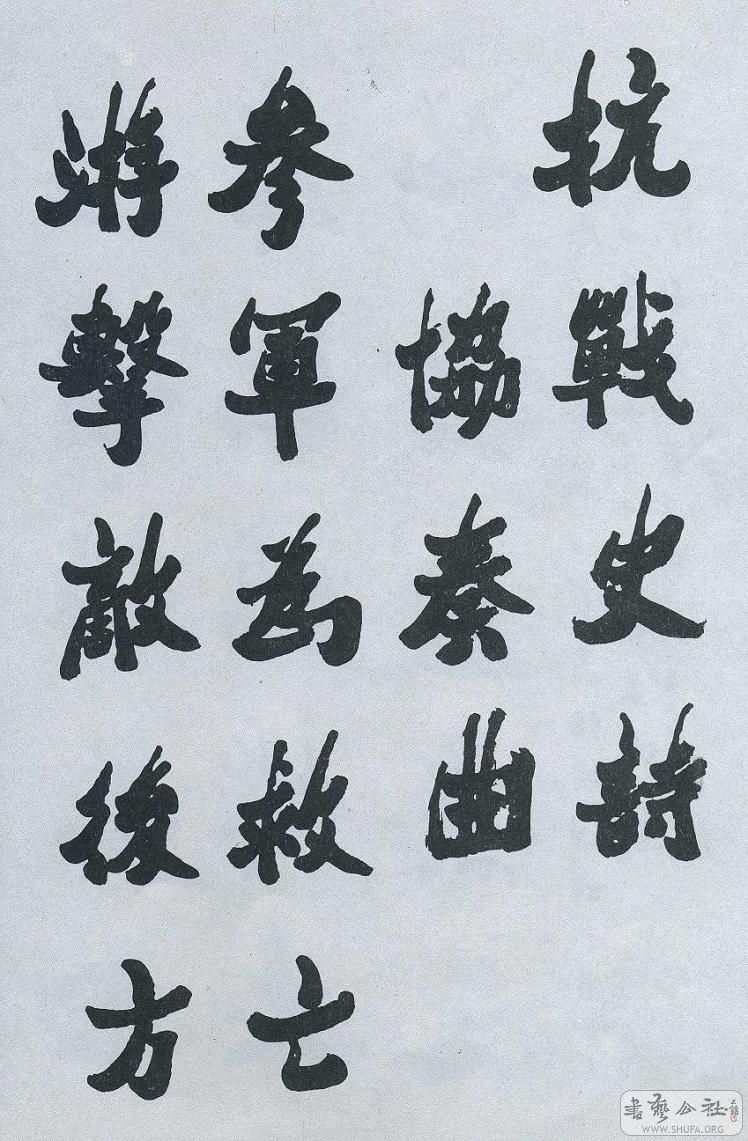 抗戰史詩
協奏曲
參軍為救亡
游擊敵後方
書藝公社
WWW.SHUFA.ORG